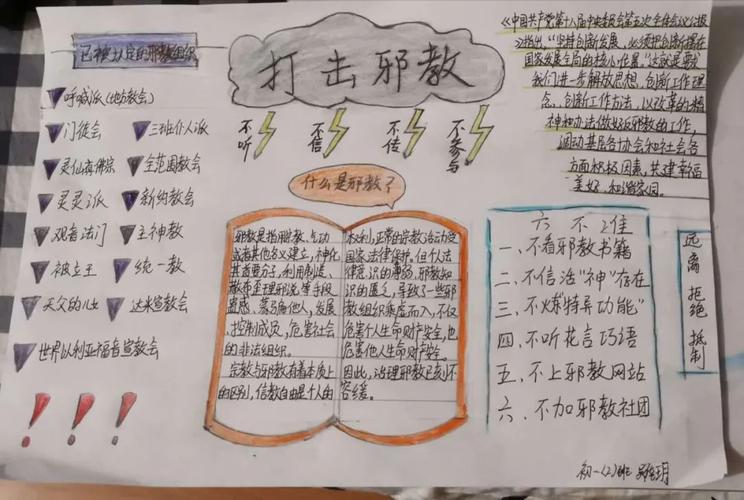 已被认定的邪教组织
呼喊派(地方教会)
门徒会 三班仆人派
灵仙真佛宗 全范围教会
灵灵派 新约教会
观音法门 主神教
被立王 统一教
天父的儿女 达米宣教会
世界以利亚福音宣教会
打击邪教
不听 不信 不传 不参与
什么是邪教?
邪教是指用宗教、气功
或者其他名义建立,神化
其首要分子,利用制造、
散布歪理邪说等手段
蛊惑、蒙骗他人,发展
、控制成员,危害社会
的非法组织。
宗教与邪教有着本质上
的区别,信教自由是个人的
权利,正常的宗教活动受
国家法律保护。但个人法
律意识的薄弱,邪教知
识的匮乏,导致了一些邪
教组织乘虚而入,不仅
危害个人生命财产安全,也
危害他人生命财产安全。
因此,治理邪教已刻不
容缓。
《中国共产党第十八届中央委员会第五次全体会议公报
》指出,“坚持创新发展,必须把创新摆在
国家发展全局的核心位置,”这就是要求
我们进一步解放思想,创新工作理
念、创新工作方法,以改革的精
神和办法做好反邪教的工作,
调动基层各协会和社会各
方面积极因素,共建幸福
美好、和谐家园。
六不准
一、不看邪教书籍
二、不信活“神”存在
三、不炼“特异功能”
四、不听花言巧语
五、不上邪教网站
六、不加邪教社团
远离 拒绝 抵制
初一(2)班